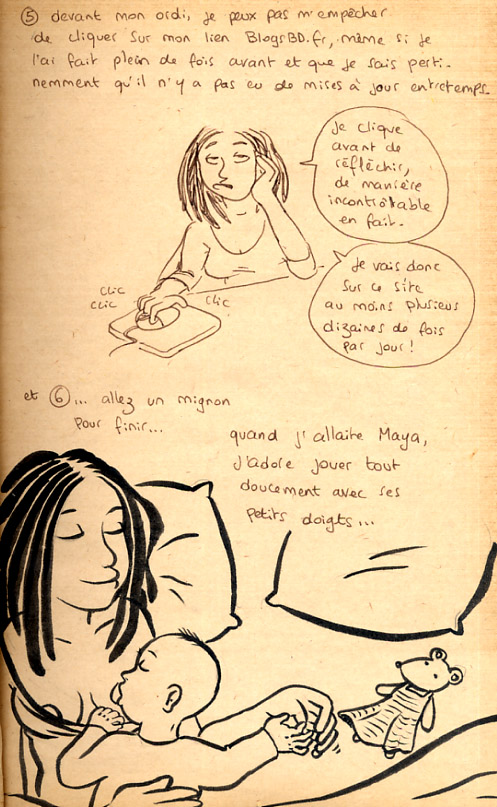 ⑤ devant mon ordi, je peux pas m'empêcher
de cliquer sur mon lien BlogsBD.fr, même si je
l'ai fait plein de fois avant et que je sais perti-
nemment qu'il n'y a pas eu de mises à jour entretemps.
je clique
avant de
réfléchir,
de manière
incontrôlable
en fait.
je vais donc
sur ce site
au moins plusieurs
dizaines de fois
par jour !
clic
clic
clic
et ⑥... allez un mignon
pour finir...
quand j'allaite Maya,
j'adore jouer tout
doucement avec ses
petits doigts...